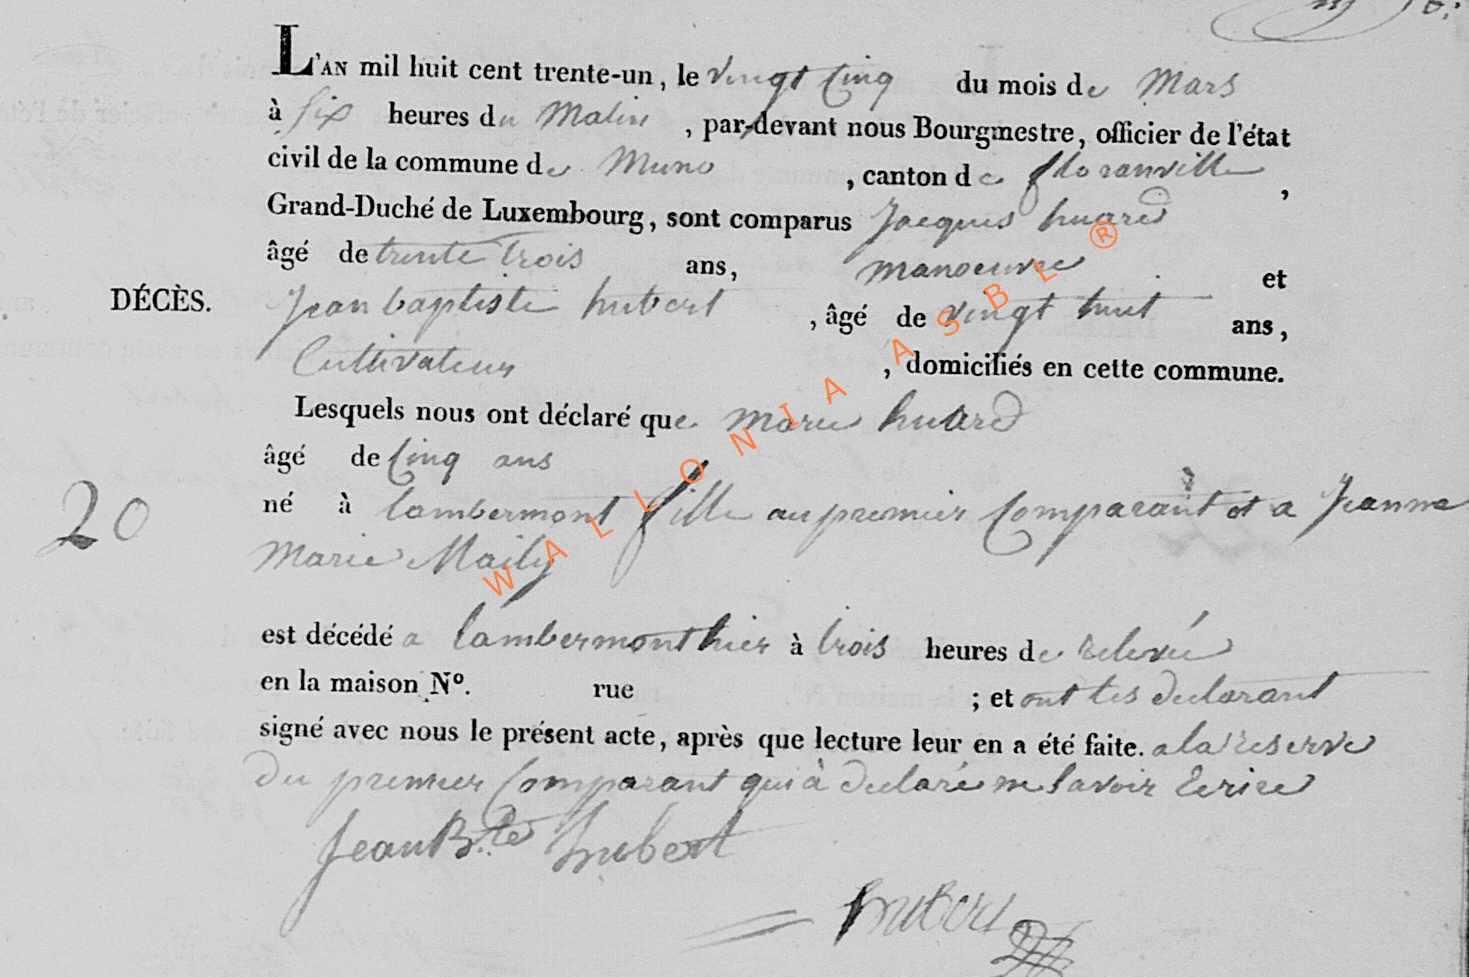 L'AN mil huit cent trente-un, le vingt Cinq du mois de Mars
à Six heures du Matin, par-devant nous Bourgmestre, officier de l'état
civil de la commune de Muno, canton de floranville,
Grand-Duché de Luxembourg, sont comparus Jacques huard
âgé de trente trois ans, manoeuvre et
DÉCÈS. Jean baptiste hubert, âgé de vingt huit ans,
Cultivateur, domiciliés en cette commune.
Lesquels nous ont déclaré que marie huard
âgé de Cinq ans
né à lambermont fille au premier Comparant et a Jeanne
20
Marie Maily
est décédé a lambermont hier à trois heures de relevée
en la maison N°. rue ; et ont les declarant
signé avec nous le présent acte, après que lecture leur en a été faite. a la reserve
Du premier Comparant qui à declaré ne Savoir Ecrire
Jean Bte hubert
hubert
WALLONIA ASBL ®